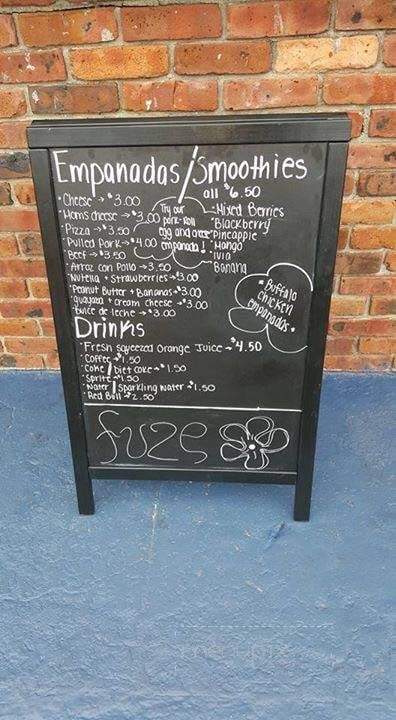 Empanadas/Smoothies
all $6.50
• Cheese → $3.00
• Ham & cheese → $3.00
• Pizza → $3.50
• Pulled Pork → $4.00
Beef → $3.50
• Arroz con Pollo → 3.50
• Nutella + Strawberries → $3.00
• Peanut Butter + Bananas → $3.00
• guayaba + cream cheese → $3.00
• Dulce de leche → $3.00
Try our
pork-roll
egg and cheese
empanada!
• Mixed Berries
• Blackberry
• Pineapple
• Mango
Banana
• Buffalo
chicken
empanadas •
Drinks
• Fresh squeezed Orange Juice → $4.50
• Coffee → $1.50
• Coke / Diet coke → $1.50
• Sprite → $1.50
• Water / Sparkling water → $1.50
• Red Bull → $2.50
fuze